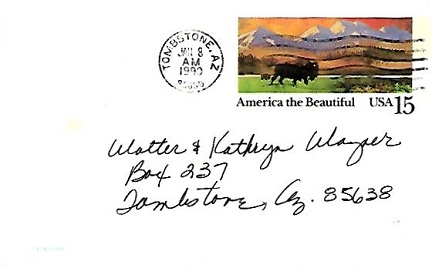 TOMBSTONE, AZ
JAN 8
AM
1990
85638
America the Beautiful USA 15
Walter & Kathryn Wayper
Box 237
Tombstone, Az. 85638